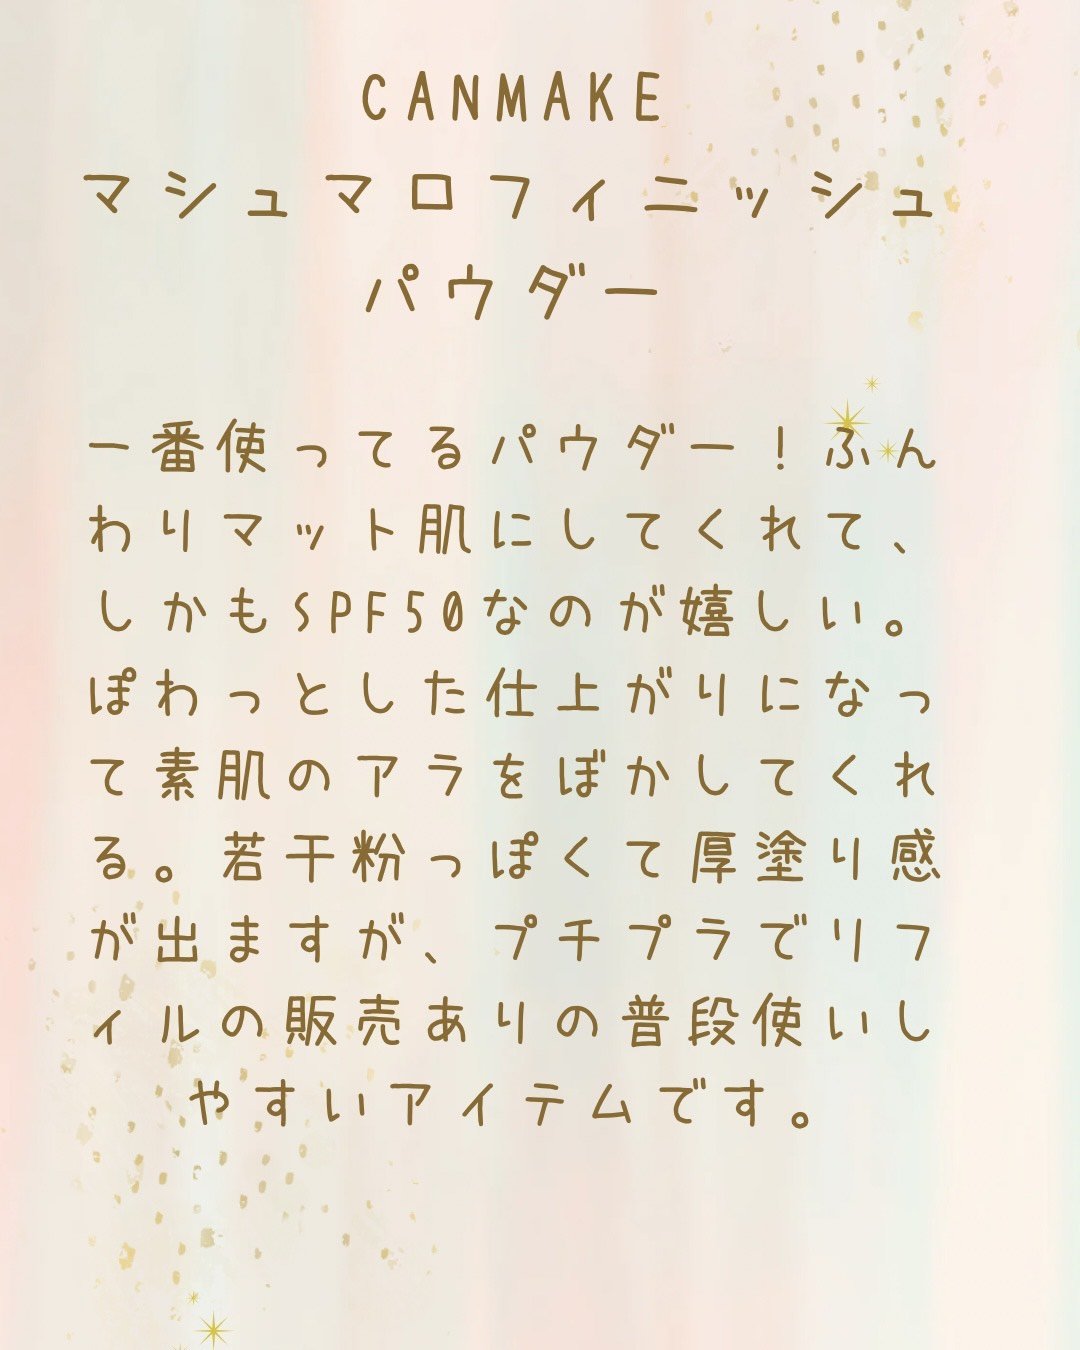 CANMAKE
マシュマロフィニッシュ
パウダー
一番使ってるパウダー！ふん
わりマット肌にしてくれて、
しかもSPF50なのが嬉しい。
ぽわっとした仕上がりになっ
て素肌のアラをぼかしてくれ
る。若干粉っぽくて厚塗り感
が出ますが、プチプラでリフ
ィルの販売ありの普段使いし
やすいアイテムです。